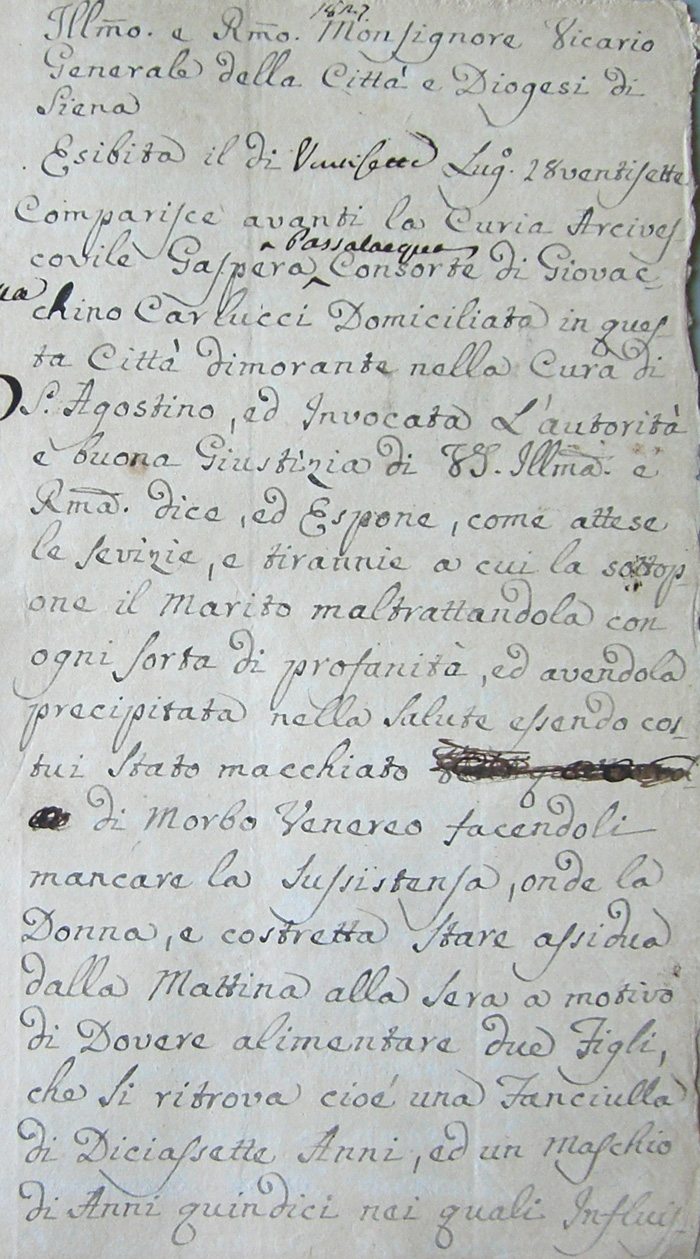 1827
Illmo. e Rmo. Monsignore Vicario
Generale della Città e Diogesi di
Siena
Esibita il di Ventisette Lug.o 28ventisette
Comparisce avanti la Curia Arcives
Passalacqua
covile Gaspera Consorte di Giovac-
chino Carlucci Domiciliata in ques-
ta Città dimorante nella Cura di
S. Agostino, ed Invocata L'autorità
e buona Giustizia di VS. Illma. e
Rma. dice, ed Espone, come attese
le sevizie, e tirannie a cui la sottop-
one il Marito maltrattandola con
ogni sorta di profanità, ed avendola
precipitata nella salute essendo cos-
tui stato macchiato
di Morbo Venereo facendoli
mancare la sussistensa, onde la
Donna, e costretta stare assidua
dalla Mattina alla sera a motivo
di Dovere alimentare due Figli,
che si ritrova cioé una Fanciulla
di Diciassette Anni, ed un Maschio
di Anni quindici nei quali Influis-